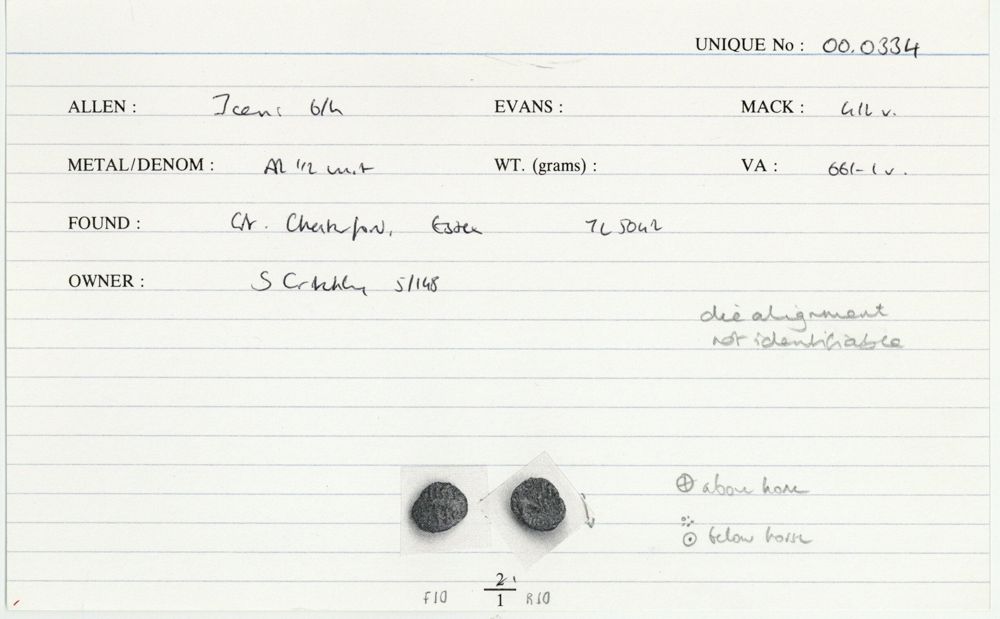 UNIQUE No : 00.0334
ALLEN : Iceni 6/h EVANS : MACK : 412 v.
METAL/DENOM : AR 1/2 unit WT. (grams) : VA : 661-1 v.
FOUND : Gt. Chesterford, Essex TL 5042
OWNER : S Critchley 5/148
die alignment
not identifiable
⊕ above horse
⊙ below horse
2
1
F10 R10